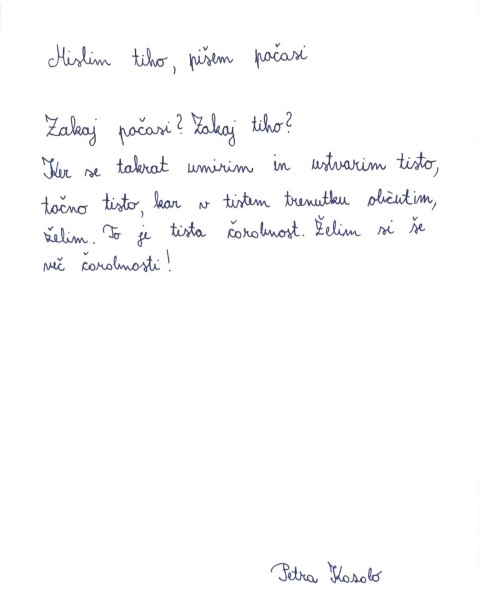 Mislim tiho, pišem počasi
Zakaj počasi? Zakaj tiho?
Ker se takrat umirim in ustvarim tisto,
točno tisto, kar v tistem trenutku občutim,
želim. To je tista čarobnost. Želim si še
več čarobnosti!
Petra Kosolo